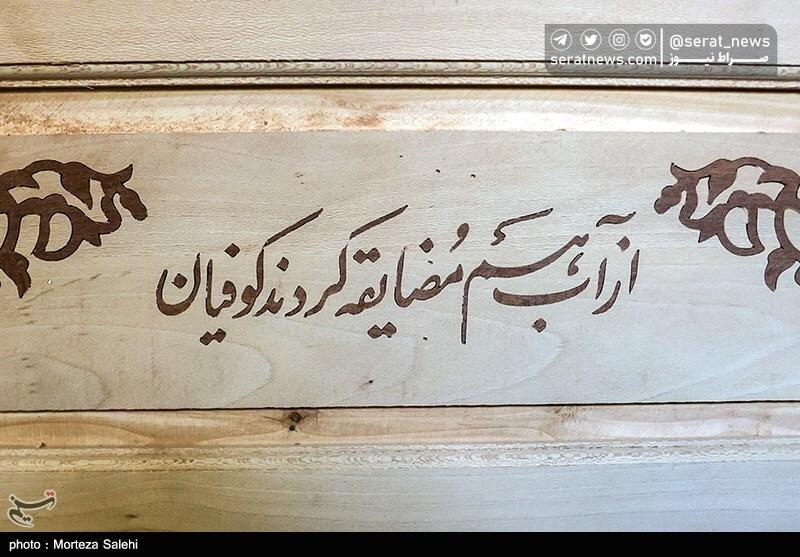 @serat_news
seratnews.com | صراط نیوز
از آب هم مُضایقه کردند کوفیان
تسنیم
photo : Morteza Salehi